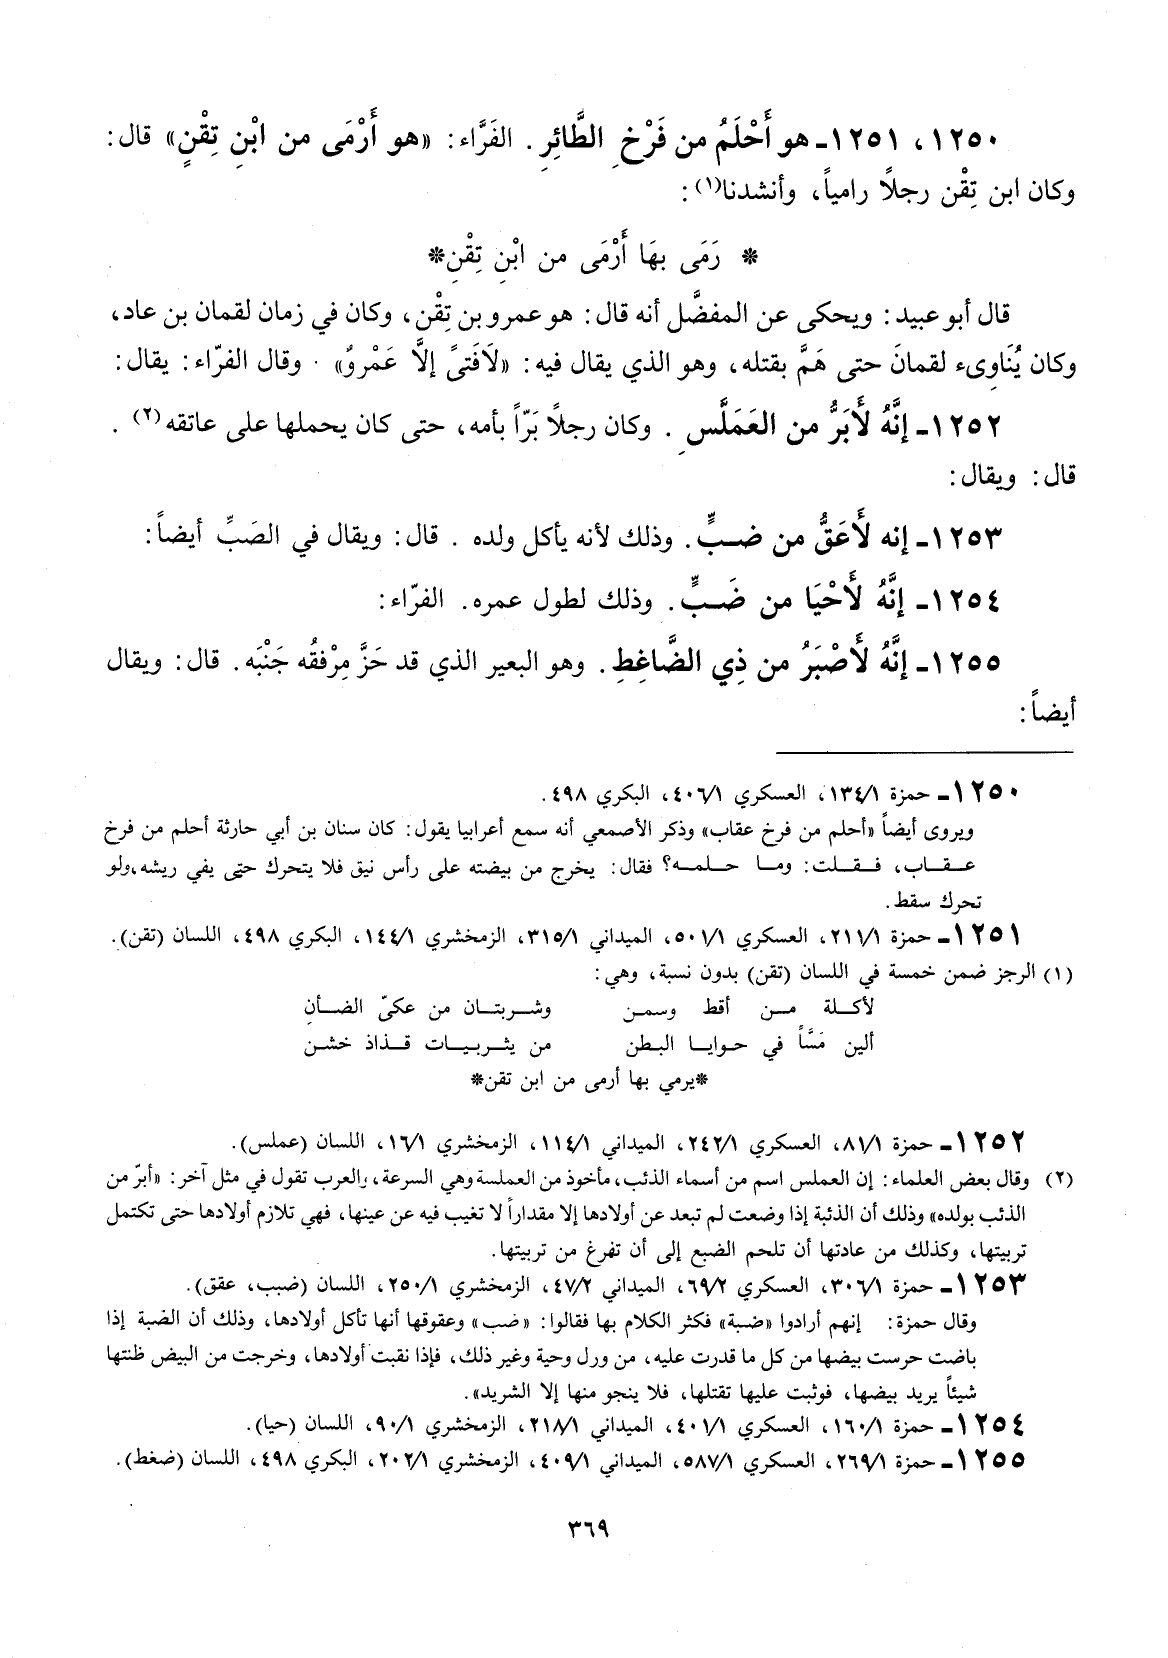 ١٢٥٠، ١٢٥١ـ هو أَحْلَمُ من فَرْخِ الطَّائِرِ. الفَرَّاء: «هو أَرْمَى من ابْنِ تِقْنٍ» قال:
وكان ابن تِقْن رجلاً رامياً، وأنشدنا(١):
* رَمَى بهَا أَرْمَى من ابْنِ تِقْنِ*
قال أبو عبيد: ويحكى عن المفضَّل أنه قال: هو عمرو بن تِقْن، وكان في زمان لقمان بن عاد،
وكان يُنَاوِىء لقمانَ حتى هَمَّ بقتله، وهو الذي يقال فيه: «لَا فَتىً إلاَّ عَمْرو» . وقال الفرّاء: يقال:
١٢٥٢ـ إنَّهُ لأَبَرُّ من العَمَلَّسِ. وكان رجلاً بَرّاً بأمه، حتى كان يحملها على عاتقه(٢) .
قال: ويقال:
١٢٥٣ـ إنه لأَعَقُّ من ضبٍّ. وذلك لأنه يأكل ولده . قال: ويقال في الضَبِّ أيضاً:
١٢٥٤ـ إنَّهُ لأَحْيَا من ضَبٍّ. وذلك لطول عمره. الفرّاء:
١٢٥٥ـ إنَّهُ لأَصْبَرُ من ذِي الضَّاغِطِ. وهو البعير الذي قد حَزَّ مِرْفقُه جَنْبَه. قال: ويقال
أيضاً:
١٢٥٠ـ حمزة ١٣٤/١، العسكري ٤٠٦/١، البكري ٤٩٨.
ويروى أيضاً «أحلم من فرخ عقاب» وذكر الأصمعي أنه سمع أعرابيا يقول: كان سنان بن أبي حارثة أحلم من فرخ
عقاب، فقلت: وما حلمه؟ فقال: يخرج من بيضته على رأس نيق فلا يتحرك حتى يفي ريشه، ولو
تحرك سقط.
١٢٥١ـ حمزة ٢١١/١، العسكري ٥٠١/١، الميداني ٣١٥/١، الزمخشري ١٤٤/١، البكري ٤٩٨، اللسان (تقن).
(١) الرجز ضمن خمسة في اللسان (تقن) بدون نسبة، وهي:
لأكلة من أقط وسمن وشربتان من عكيّ الضأنِ
ألين مَسَّاً في حوايا البطن من يثربيات قذاذ خشن
*يرمي بها أرمى من ابن تقن*
١٢٥٢ـ حمزة ٨١/١، العسكري ٢٤٢/١، الميداني ١١٤/١، الزمخشري ١٦/١، اللسان (عملس).
(٢) وقال بعض العلماء: إن العملس اسم من أسماء الذئب، مأخوذ من العملسة وهي السرعة، والعرب تقول في مثل آخر: «أبرّ من
الذئب بولده» وذلك أن الذئبة إذا وضعت لم تبعد عن أولادها إلا مقداراً لا تغيب فيه عن عينها، فهي تلازم أولادها حتى تكتمل
تربيتها، وكذلك من عادتها أن تلحم الضبع إلى أن تفرغ من تربيتها.
١٢٥٣ـ حمزة ٣٠٦/١، العسكري ٦٩/٢، الميداني ٤٧/٢، الزمخشري ٢٥٠/١، اللسان (ضبب، عقق).
وقال حمزة: إنهم أرادوا «ضبة» فكثر الكلام بها فقالوا: «ضب» وعقوقها أنها تأكل أولادها، وذلك أن الضبة إذا
باضت حرست بيضها من كل ما قدرت عليه، من ورل وحية وغير ذلك، فإذا نقبت أولادها، وخرجت من البيض ظنتها
شيئاً يريد بيضها، فوثبت عليها تقتلها، فلا ينجو منها إلا الشريد».
١٢٥٤ـ حمزة ١٦٠/١، العسكري ٤٠١/١، الميداني ٢١٨/١، الزمخشري ٩٠/١، اللسان (حيا).
١٢٥٥ـ حمزة ٢٦٩/١، العسكري ٥٨٧/١، الميداني ٤٠٩/١، الزمخشري ٢٠٢/١، البكري ٤٩٨، اللسان (ضغط).
٣٦٩